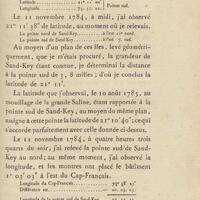 Latitude . . . . . . . 21° 11' 40"
Longitude . . . . . . 73. 32. 22.
Pointe sud.
Le 11 novembre 1784, à midi, j'ai observé
21° 11' 38" de latitude, au moment où je relevois.
La pointe nord de Sand-Key . . . . . . . à l'est 11° nord.
La pointe sud de Sand-Key . . . . . . . à l'est 7. sud.
Au moyen d'un plan de ces îles, levé géométri-
quement, que je m'étais procuré, la grandeur de
Sand-Key étant connue, je déterminai la distance
à la pointe sud de 3, 8 milles; d'où je conclus la
latitude de 21° 11'.
La latitude que j'observai, le 10 août 1785, au
mouillage de la grande Saline, étant rapportée à la
pointe sud de Sand-Key, au moyen du même plan,
fixe la latitude de cette pointe de 21° 10' 40"; ce qui
s'accorde parfaitement avec celle donnée ci-dessus.
Le 11 novembre 1784, à quatre heures trois
quarts du soir, j'ai relevé la pointe sud de Sand-
Key au nord; au même moment, j'ai observé la
longitude, et les montres ont placé le bâtiment
1° 03' 05" à l'est du Cap-Français.
Longitude du Cap-Français. . . . . . . 74° 38' 05"
Différence est. . . . . . . . . . 1. 03. 05.
Longitude de la pointe sud de Sand-Key